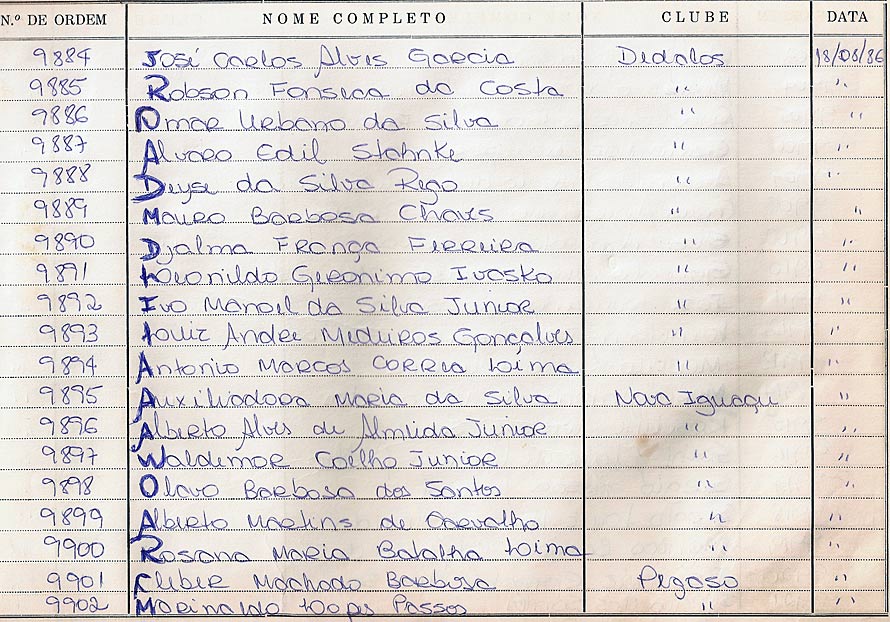 N.º DE ORDEM NOME COMPLETO CLUBE DATA
9884 José Carlos Alves Garcia Dedalos 18/08/86
9885 Robson Fonseca da Costa " "
9886 Omar Urbano da Silva " "
9887 Alvaro Edil Stahnke " "
9888 Deyse da Silva Rego " "
9889 Mauro Barbosa Chaves " "
9890 Djalma França Ferreira " "
9891 Leonildo Geronimo Ivasko " "
9892 Ivo Manoel da Silva Junior " "
9893 Louiz Andre Medeiros Gonçalves " "
9894 Antonio Marcos Correia Loima " "
9895 Auxiliadora Maria da Silva Nova Iguaçu "
9896 Alberto Alves de Almeida Junior " "
9897 Waldemar Coelho Junior " "
9898 Olavo Barbosa dos Santos " "
9899 Alberto Martins de Carvalho " "
9900 Rosana Maria Batalha Loima " "
9901 Cleber Machado Barbosa Pegaso "
9902 Marinaldo Passos " "